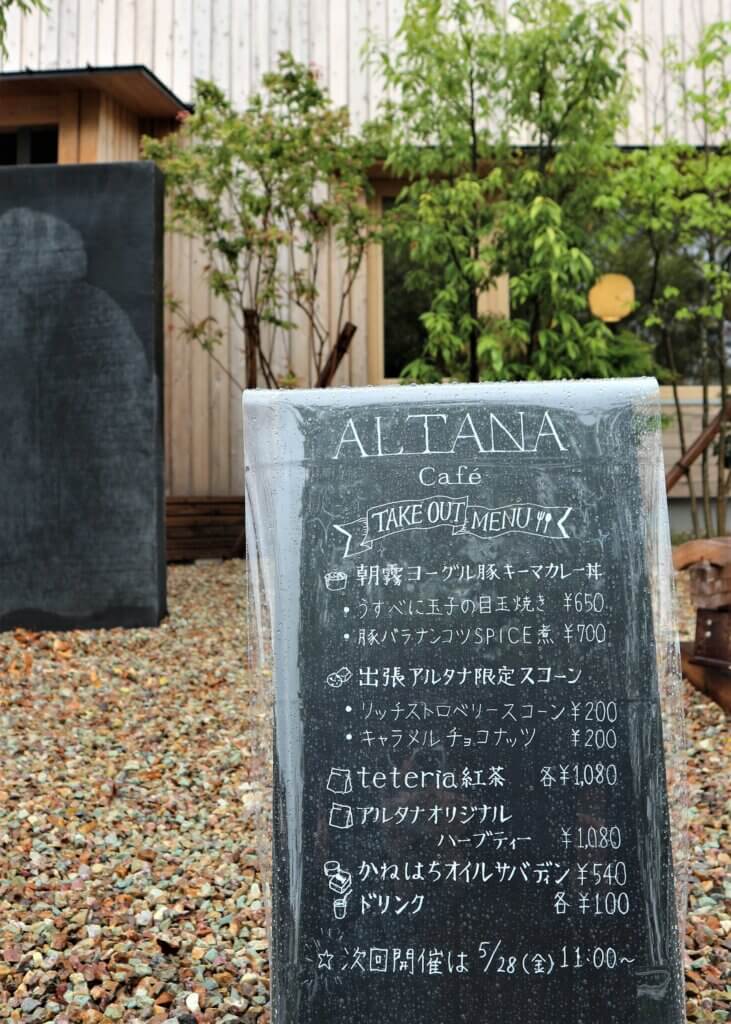 ALTANA
Café
TAKE OUT MENU
朝霧ヨーグル豚キーマカレー丼
・うすべに玉子の目玉焼き ¥650
・豚バラナンコツSPICE煮 ¥700
出張アルタナ限定スコーン
・リッチストロベリースコーン ¥200
・キャラメルチョコナッツ ¥200
teteria紅茶 各¥1,080
アルタナオリジナル
ハーブティー ¥1,080
かねはちオイルサバディン ¥540
ドリンク 各¥100
☆次回開催は 5/28(金) 11:00~